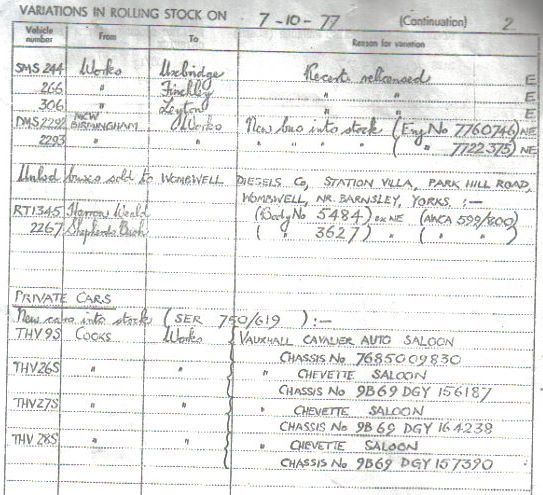 VARIATIONS IN ROLLING STOCK ON 7-10-77 (Continuation) 2
Vehicle number From To Reason for variation
SMS 244 Works Uxbridge Recert. relicensed E
266 " Finchley " " E
306 " Leyton " " E
DMS2292 MCW BIRMINGHAM Works New bus into stock (Eng No 7760746) NE
2293 " " " " " " ( " 7722375) NE
Unlsd buses sold to WOMBWELL DIESELS Co, STATION VILLA, PARK HILL ROAD,
WOMBWELL, NR. BARNSLEY, YORKS. :-
RT1345 Harrow Weald (Body No 5484) ex NE (AWCA 599/800)
2267 Shepherds Bush ( " 3627) " ( " " )
PRIVATE CARS
New cars into stock (SER 750/619 ):-
THV9S COOKS Works VAUXHALL CAVALIER AUTO SALOON
CHASSIS No 7685009830
THV26S " " " CHEVETTE SALOON
CHASSIS No 9B69 DGY 156187
THV27S " " " CHEVETTE SALOON
CHASSIS No 9B69 DGY 164238
THV 28S " " " CHEVETTE SALOON
CHASSIS No 9B69 DGY 157390